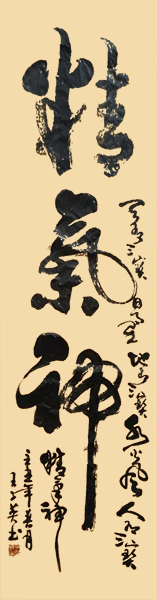 精氣神
天有三寶日月星地有三寶水火風人有三寶
精氣神
年五月
王英书